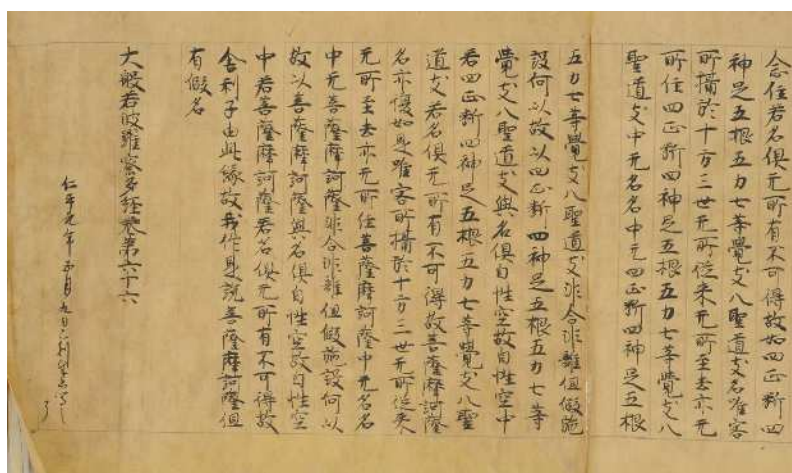 念住若名俱无所有不可得故如四正斷四
神足五根五力七等覺支八聖道支名唯客
所攝於十方三世无所從来无所至去亦无
所住四正斷四神足五根五力七等覺支八
聖道支中无名名中无四正斷四神足五根
五力七等覺支八聖道支非合非離但假施
設何以故以四正斷四神足五根五力七等
覺支八聖道支與名俱自性空故自性空中
若四正斷四神足五根五力七等覺支八聖
道支若名俱无所有不可得故菩薩摩訶薩
名亦復如是唯客所攝於十方三世无所從来
无所至去亦无所住菩薩摩訶薩中无名名
中无菩薩摩訶薩非合非離但假施設何以
故以菩薩摩訶薩與名俱自性空故自性空
中若菩薩摩訶薩若名俱无所有不可得故
舍利子由此緣故我作是說菩薩摩訶薩但
有假名
大般若波羅蜜多經卷第六十六
仁平元年 月九日